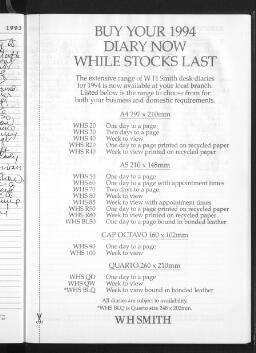 1993
BUY YOUR 1994
DIARY NOW
WHILE STOCKS LAST
The extensive range of W H Smith desk diaries
for 1994 is now available at your local branch.
Listed below is the range to choose from for
both your business and domestic requirements.
A4 297 x 210mm
WHS 20 One day to a page
WHS 30 Two days to a page
WHS 40 Week to view
WHS R20 One day to a page printed on recycled paper
WHS R40 Week to view printed on recycled paper
A5 210 x 148mm
WHS 50 One day to a page
WHS 60 One day to a page with appointment times
WHS 70 Two days to a page
WHS 80 Week to view
WHS 85 Week to view with appointment times
WHS R50 One day to a page printed on recycled paper
WHS R80 Week to view printed on recycled paper
WHS BL50 One day to a page bound in bonded leather
CAP OCTAVO 160 x 102mm
WHS 90 One day to a page
WHS 100 Week to view
QUARTO 260 x 210mm
WHS QD One day to a page
WHS QW Week to view
*WHS BLQ Week to view bound in bonded leather
All diaries are subject to availability.
*WHS BLQ is Quarto size 248 x 202mm.
WH SMITH